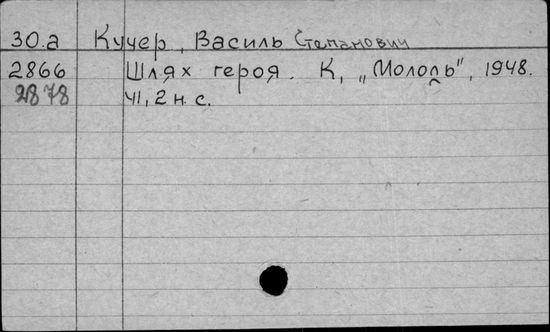 30.а Кучер, Василь Степанович
2866 Шлях героя. К, „Молодь", 1948.
2878 41, 2 н. с.